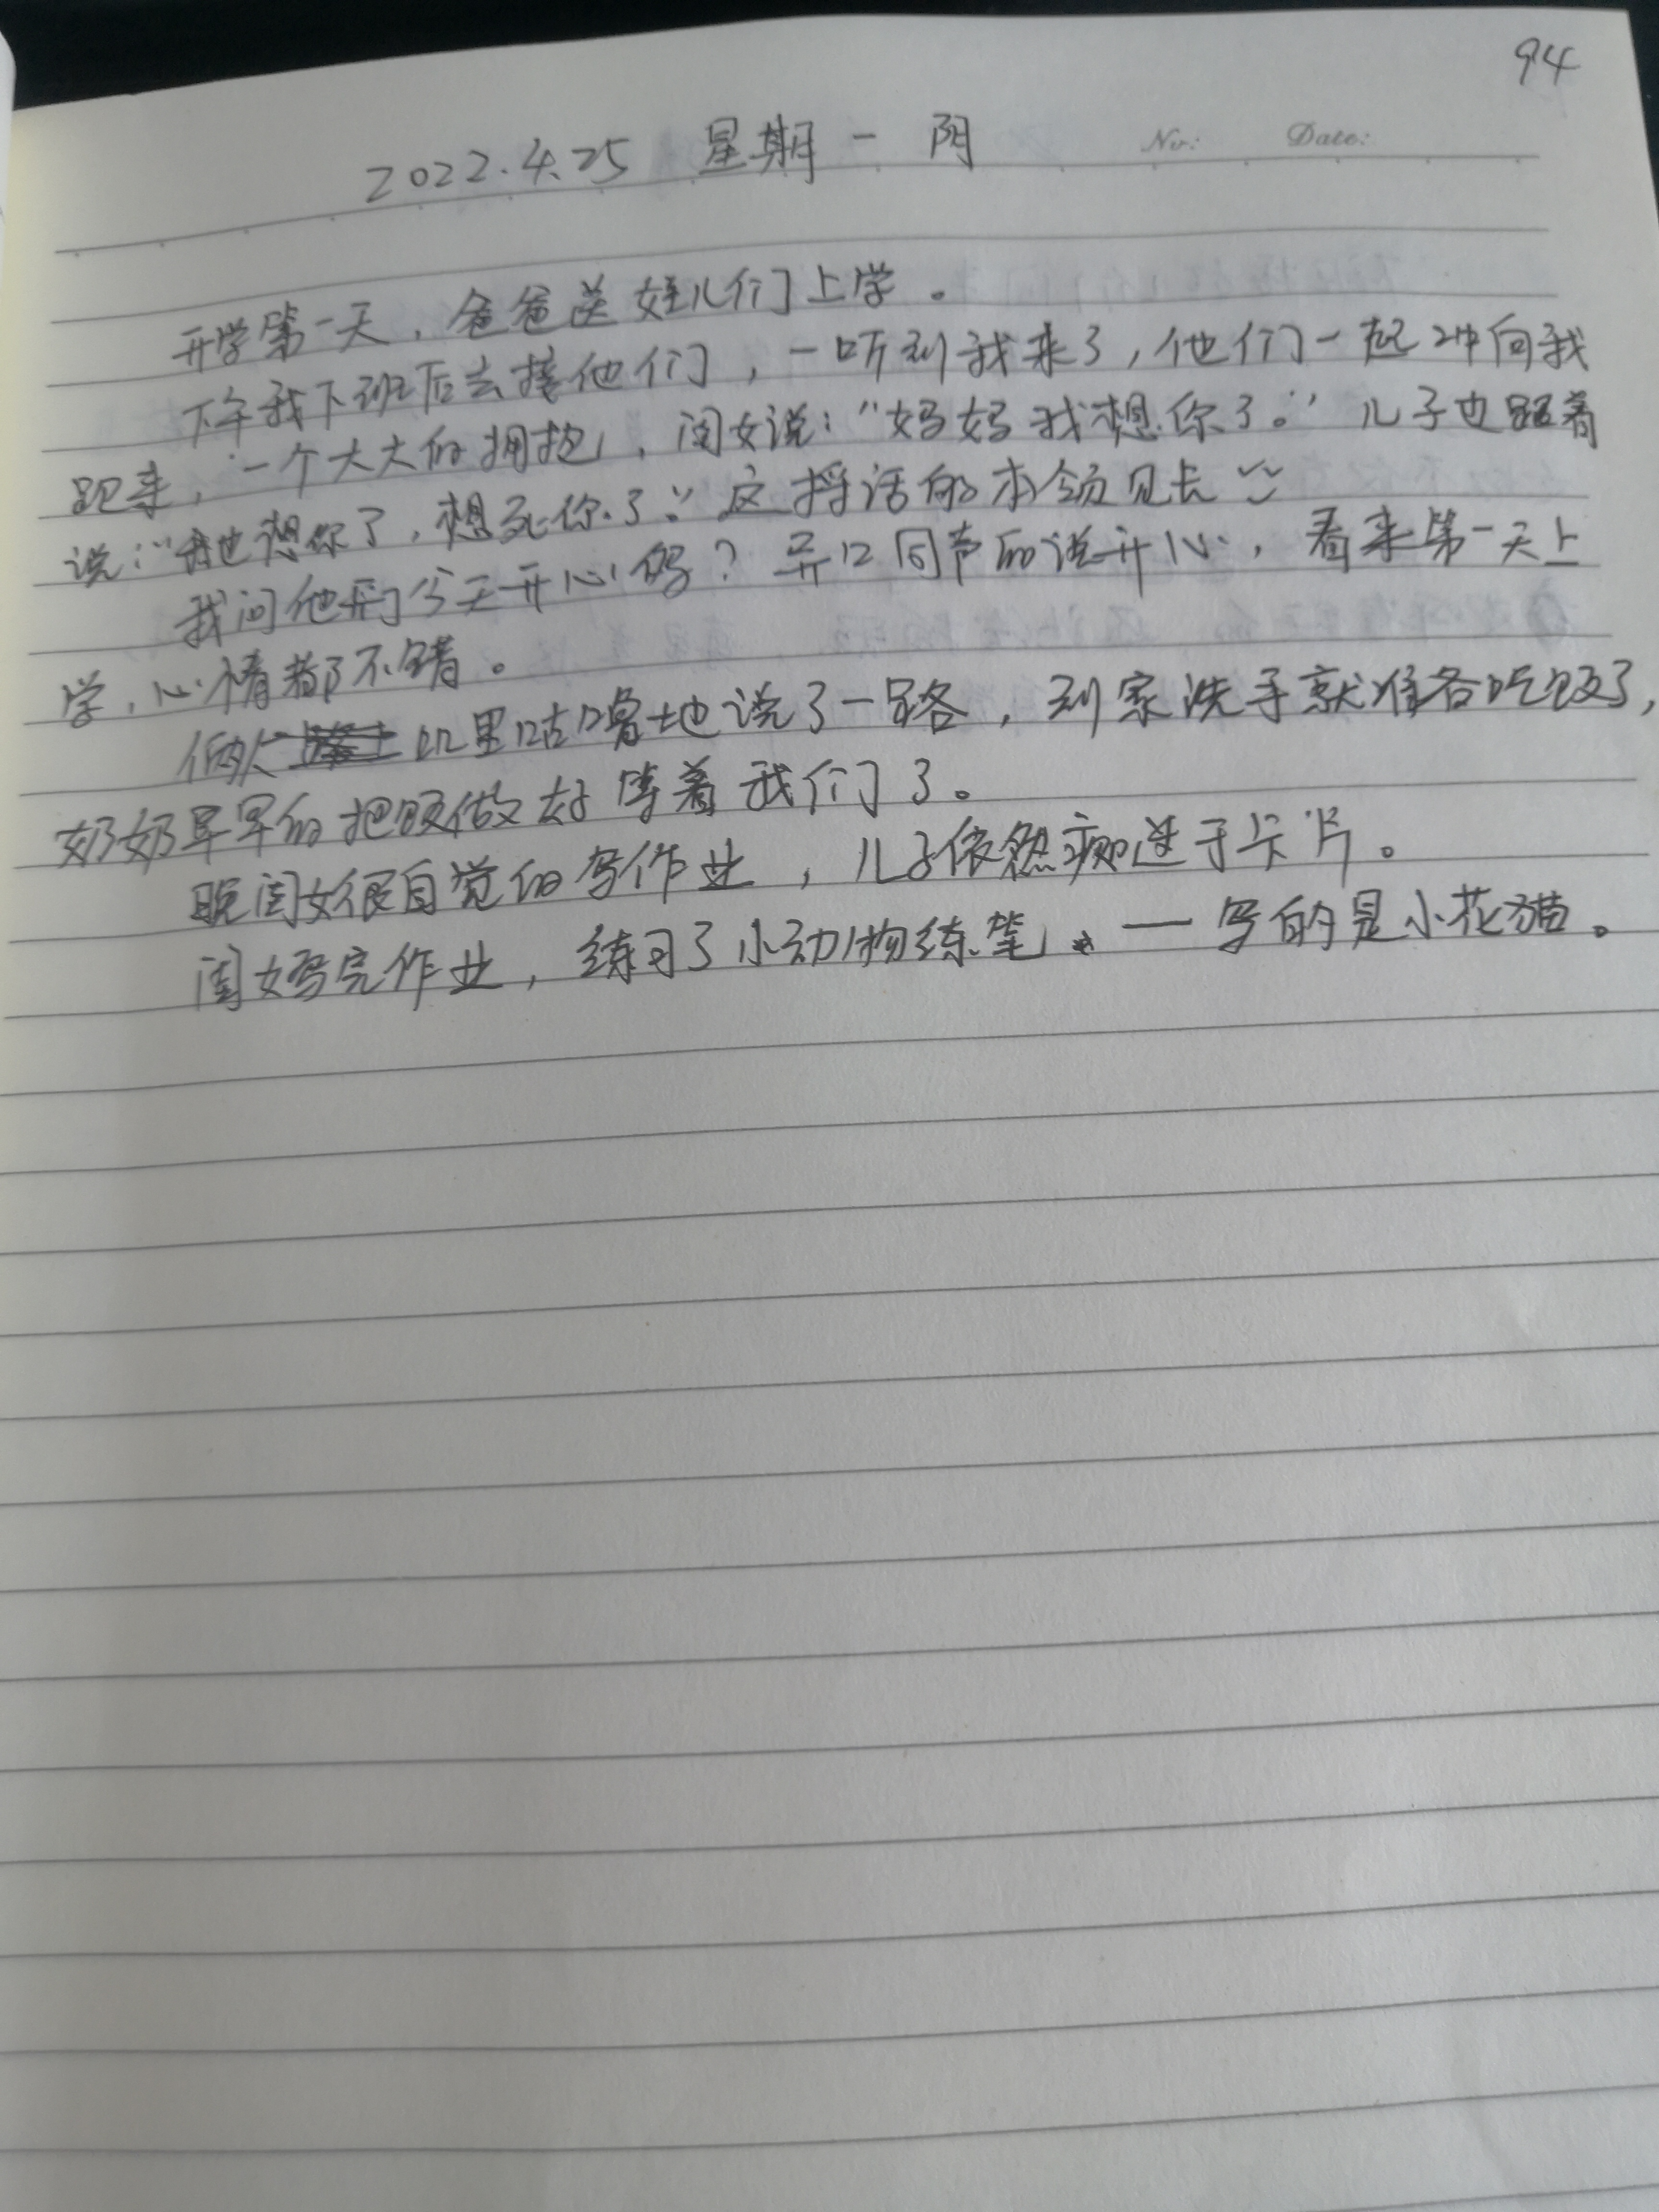 94
2022.4.25 星期一 阴
No: Date:
开学第一天，爸爸送娃儿们上学。
下午我下班后去接他们，一听到我来了，他们一起冲向我
跑来，一个大大的拥抱，闺女说：“妈妈我想你了。”儿子也跟着
说：“我也想你了，想死你了。”这捋话的本领见长
我问他们今天开心吗？异口同声的说开心，看来第一天上
学，心情都不错。
俩人叽里咕噜地说了一路，到家洗手就准备吃饭了，
奶奶早早的把饭做好等着我们了。
晚闺女很自觉的写作业，儿子依然痴迷于卡片。
闺女写完作业，练习了小动物练笔。——写的是小花猫。